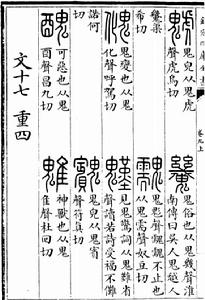 卷九上
鬼皃从鬼
虎聲虎烏切
鬼俗也从鬼幾聲淮
南傳曰吳人鬼越人
希切
鬼鬽聲䰰䰰不止也
从鬼需聲奴豆切
鬼變也从鬼
化聲呼駕切
見鬼驚詞从鬼難省
聲讀若詩受福不儺
諾何
切
鬼皃从鬼賓
聲符真切
醜
可惡也从鬼
酉聲昌九切
魋
神獸也从鬼
隹聲杜回切
文十七 重四